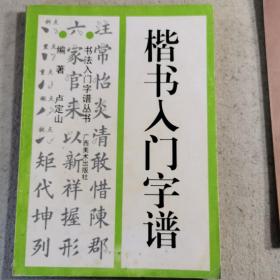 楷书入门字谱
书法入门字谱丛书
编著 卢定山
广西美术出版社
注常怡炎清敢惜陳郡
六家官未以新祥握形
矩代坤列